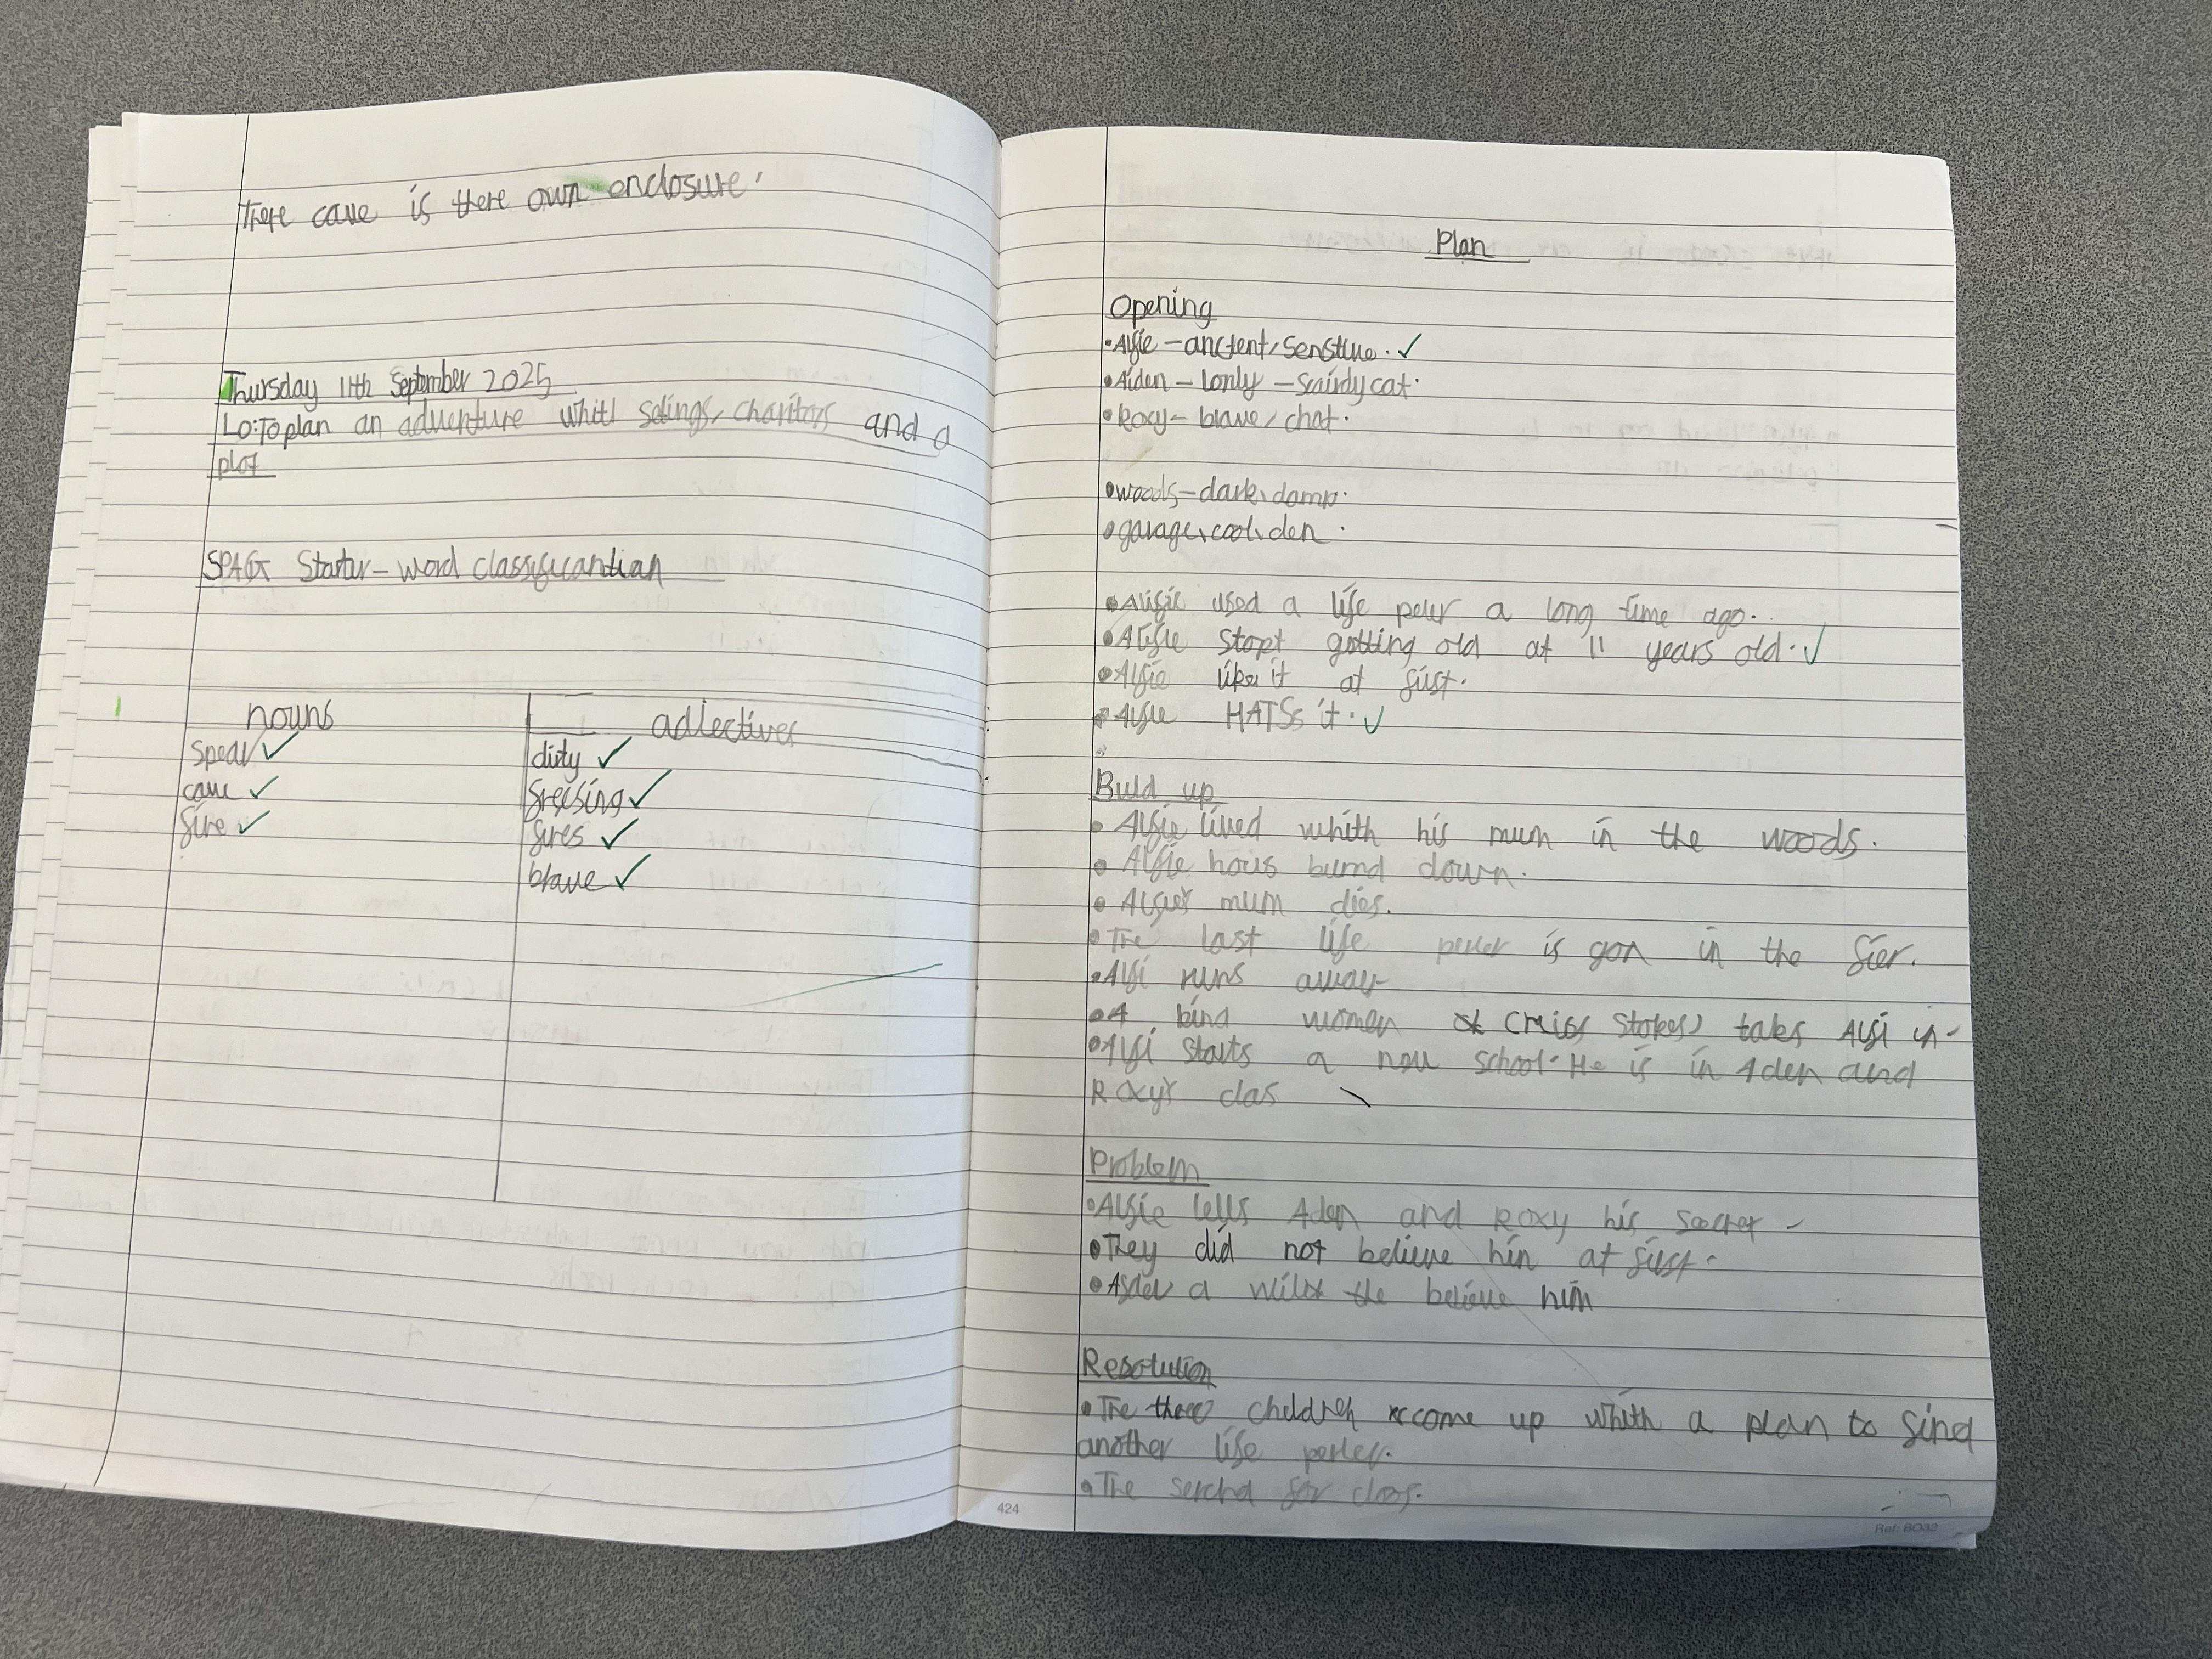 There cave is there own enclosure.
Thursday 11th September 2025
Lo: To plan an adventure whitl setings, charitors and a
plot
SPAG Starter - word classificantian
nouns
spear
cave
fire
adlectives
dirty
freising
fires
brave
Plan
Opening
• Alfie - anctent, senstive.
• Aiden - lonly - scairdy cat.
• Roxy - brave, chat.
• woods - dark, damp.
• garage, cool, den.
• Alifie used a life peler a long time ago.
• Alfie stopt getting old at 11 years old.
• Alfie liket it at fist.
• Alfie HATSs it.
Buld up
• Alfie lived whith his mum in the woods.
• Alfie hous burnd down.
• Alfie's mum dies.
• The last life perler is gon in the fier.
• Alfi runs away
• A kind women (miss stokes) takes Alfi in.
• Alfi starts a new school. He is in Aden and
Roxy's clas
Problem
• Alfie tells Aden and Roxy his secret
• They did not believe him at fist.
• Afder a wild the believe him
Resolution
• The three children come up whith a plan to find
another life perler.
• The serchd for cloos.
424
Ref: BO32